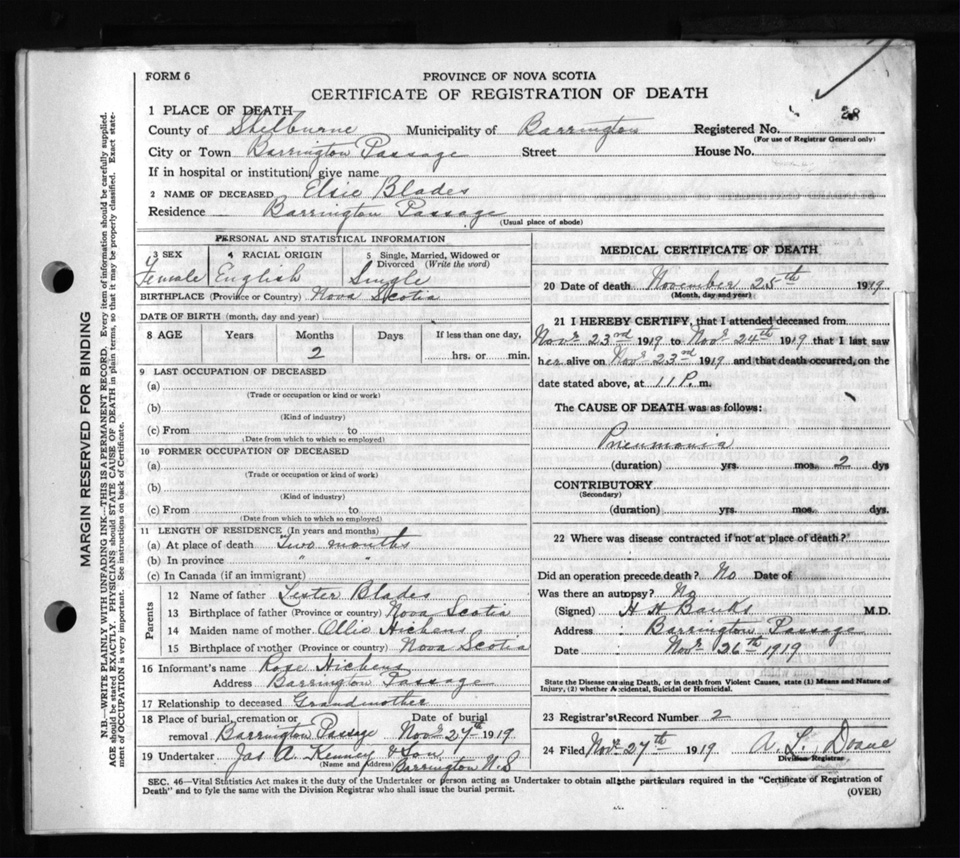 FORM 6
PROVINCE OF NOVA SCOTIA
CERTIFICATE OF REGISTRATION OF DEATH
1 PLACE OF DEATH
County of Shelburne Municipality of Barrington Registered No. 28
(For use of Registrar General only)
City or Town Barrington Passage Street House No.
If in hospital or institution, give name
2 NAME OF DECEASED Elsie Blades
Residence Barrington Passage
(Usual place of abode)
PERSONAL AND STATISTICAL INFORMATION
3 SEX 4 RACIAL ORIGIN 5 Single, Married, Widowed or Divorced (Write the word)
Female English Single
BIRTHPLACE (Province or Country) Nova Scotia
DATE OF BIRTH (month, day and year)
8 AGE Years Months Days If less than one day,
2 hrs. or min.
9 LAST OCCUPATION OF DECEASED
(a)
(Trade or occupation or kind or work)
(b)
(Kind of industry)
(c) From to
(Date from which to which so employed)
10 FORMER OCCUPATION OF DECEASED
(a)
(Trade or occupation or kind of work)
(b)
(Kind of industry)
(c) From to
(Date from which to which so employed)
11 LENGTH OF RESIDENCE (In years and months)
(a) At place of death Two months
(b) In province " "
(c) In Canada (if an immigrant)
Parents
12 Name of father Lester Blades
13 Birthplace of father (Province or country) Nova Scotia
14 Maiden name of mother Ollie Hichens
15 Birthplace of mother (Province or country) Nova Scotia
16 Informant's name Rose Hichens
Address Barrington Passage
17 Relationship to deceased Grandmother
18 Place of burial, cremation or removal Barrington Passage Date of burial Novr 27th 1919
19 Undertaker Jas A. Kenney & Son
(Name and Address) Barrington N.S
MEDICAL CERTIFICATE OF DEATH
20 Date of death November 25th 1919
(Month, day and year)
21 I HEREBY CERTIFY, that I attended deceased from
Novr 23rd 1919 to Novr 24th 1919 that I last saw
her alive on Novr 23rd 1919 and that death occurred, on the
date stated above, at 11 P. m.
The CAUSE OF DEATH was as follows:
Pneumonia
(duration) yrs. mos. 2 dys
CONTRIBUTORY
(Secondary)
(duration) yrs. mos. dys
22 Where was disease contracted if not at place of death?
Did an operation precede death? No Date of
Was there an autopsy? No
(Signed) H H Banks M.D.
Address Barrington Passage
Date Novr 26th 1919
State the Disease causing Death, or in death from Violent Causes, state (1) Means and Nature of
Injury, (2) whether Accidental, Suicidal or Homicidal.
23 Registrar's Record Number 2
24 Filed Novr 27th 1919 A. L. Doane
Division Registrar
SEC. 46—Vital Statistics Act makes it the duty of the Undertaker or person acting as Undertaker to obtain all the particulars required in the "Certificate of Registration of
Death" and to fyle the same with the Division Registrar who shall issue the burial permit.
(OVER)
MARGIN RESERVED FOR BINDING
N.B.—WRITE PLAINLY WITH UNFADING INK—THIS IS A PERMANENT RECORD. Every item of information should be carefully supplied.
AGE should be stated EXACTLY. PHYSICIANS should STATE CAUSE OF DEATH in plain terms, so that it may be properly classified. Exact state-
ment of OCCUPATION is very important. See instructions on back of Certificate.